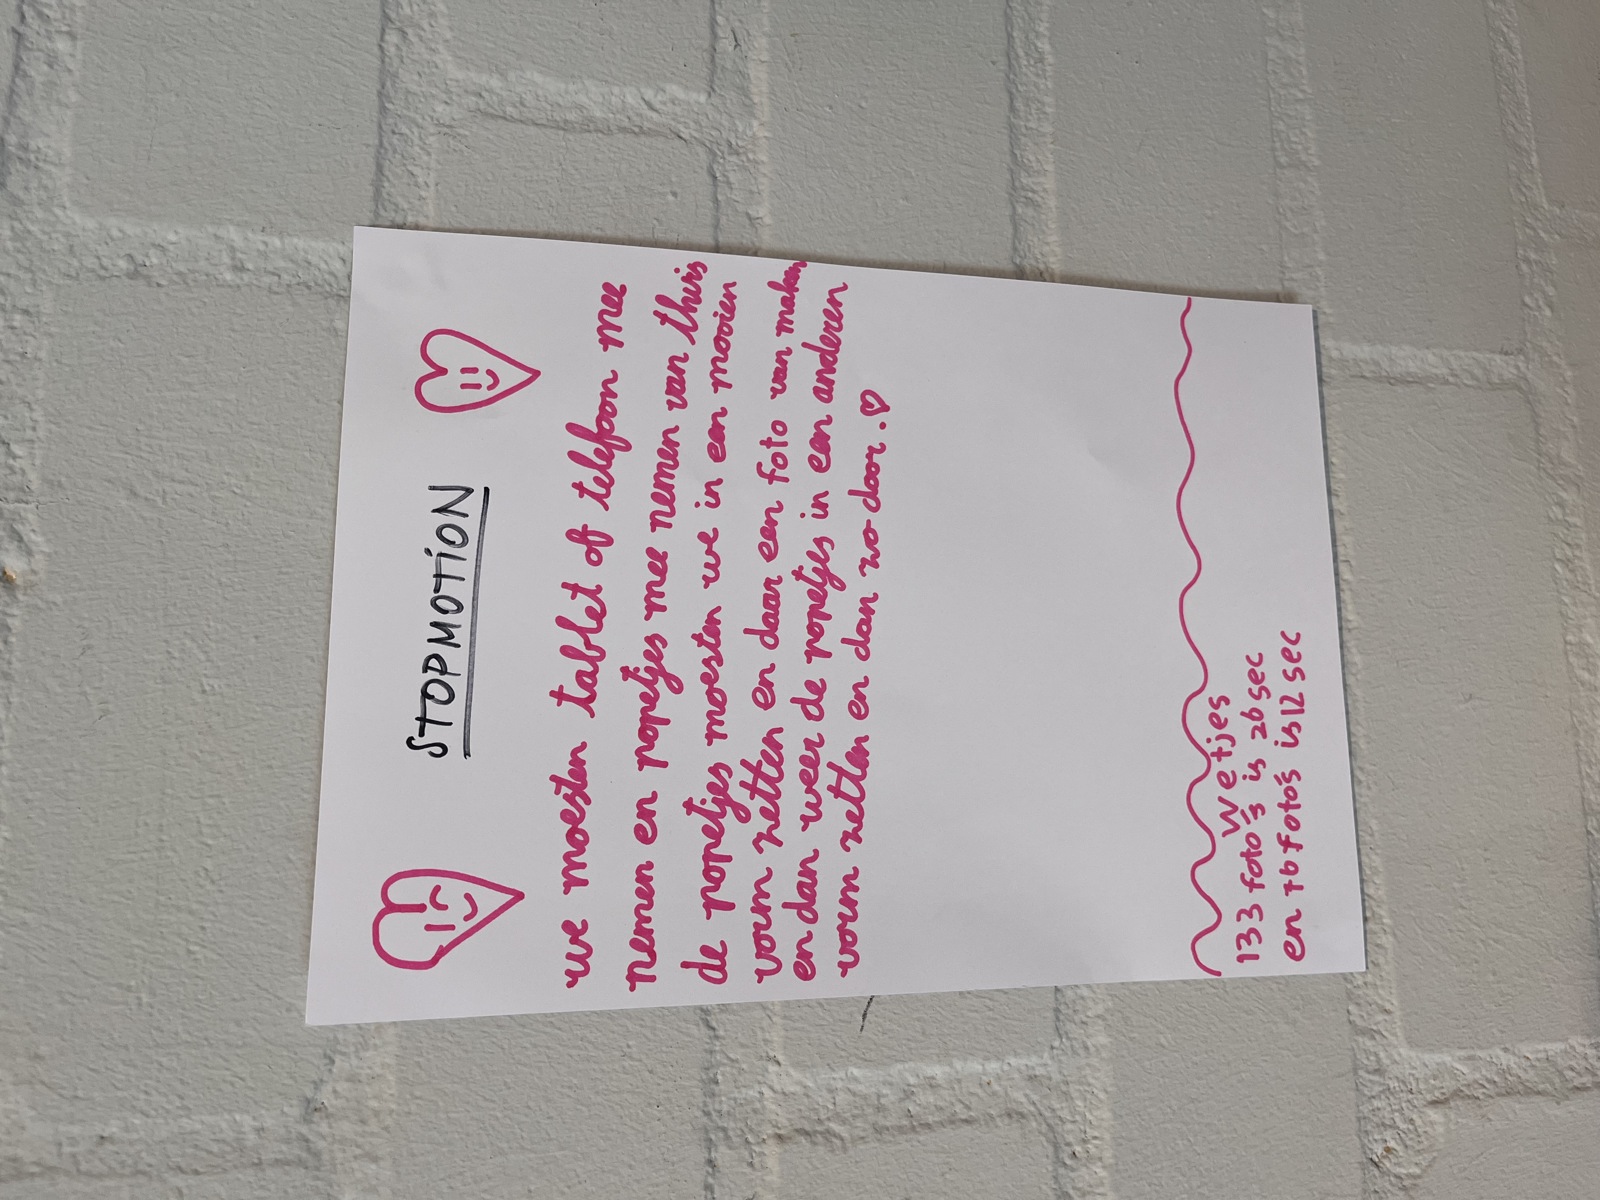 STOPMOTION
we moesten tablet of telefoon mee
nemen en popetjes mee nemen van thuis
de popetjes moesten we in een mooien
vorm zetten en daar een foto van maken
en dan weer de popetjes in een anderen
vorm zetten en dan zo door.
Wetjes
133 foto's is 26 sec
en 76 foto's is 12 sec